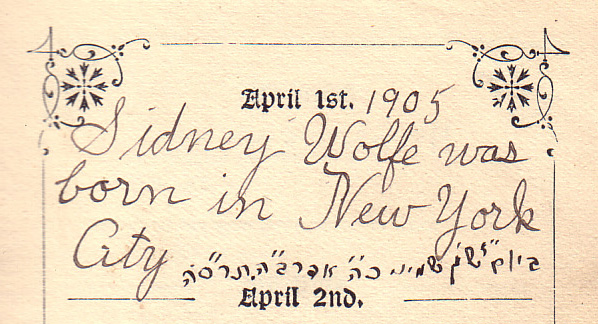 April 1st. 1905
Sidney Wolfe was
born in New York
City ביום ש״ק שמיני כ״ה אדר ב״ ה׳תרס״ה
April 2nd.